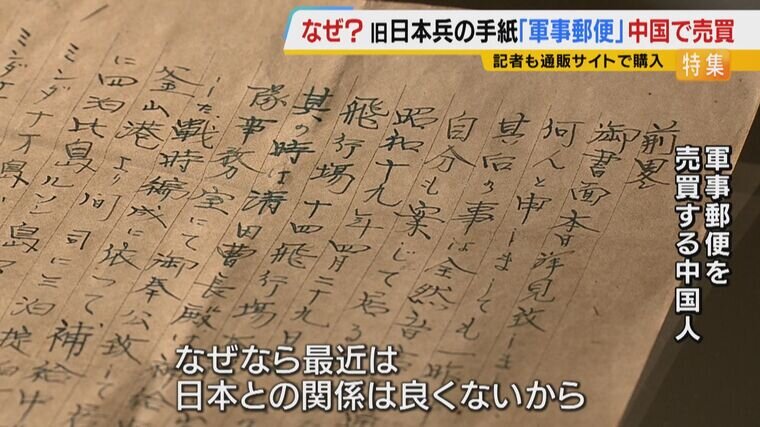 なぜ?旧日本兵の手紙「軍事郵便」中国で売買
記者も通販サイトで購入
特集
軍事郵便を
売買する中国人
前畧
御書面本日拝見致しま
何んと申しましても一昨
其后の事は全然音
自分も案じて居る
昭和十九年四月二十九日
飛行場十四飛行場
其の時は濱田曹長殿
隊事務室にて御奉公致して
した戦時編成に依って補給
釜山港より門司に三泊
に四泊比島ルソン島
ミンダナオ島
なぜなら最近は
日本との関係は良くないから